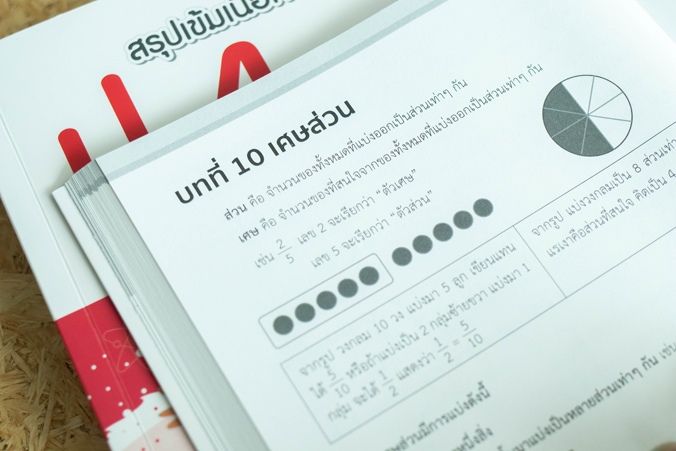 สรุปเข้มเนื้อ
บทที่ 10 เศษส่วน
ส่วน คือ จำนวนของทั้งหมดที่แบ่งออกเป็นส่วนเท่าๆ กัน
เศษ คือ จำนวนของที่สนใจจากของทั้งหมดที่แบ่งออกเป็นส่วนเท่าๆ กัน
เช่น 2/5 เลข 2 จะเรียกว่า “ตัวเศษ”
เลข 5 จะเรียกว่า “ตัวส่วน”
จากรูป วงกลม 10 วง แบ่งมา 5 ลูก เขียนแทน
ได้ 5/10 หรือถ้าแบ่งเป็น 2 กลุ่มซ้ายขวา แบ่งมา 1
กลุ่ม จะได้ 1/2 แสดงว่า 1/2 = 5/10
จากรูป แบ่งวงกลมเป็น 8 ส่วนเท่า
แรเงาคือส่วนที่สนใจ คิดเป็น 4
ศษส่วนมีการแบ่งดังนี้
หนึ่งสิ่ง
มาแบ่งเป็นหลายส่วนเท่าๆ กัน เช่น